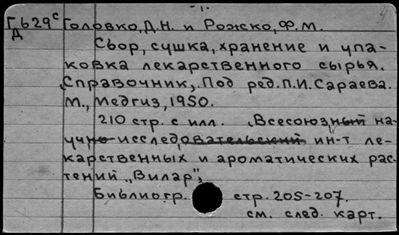 Г629с Головко, Д.Н. и Рожско, Ф.М.
Д
Сбор, сушка, хранение и упа-
ковка лекарственного сырья.
Справочник. Под ред. П.И. Сараева.
М., Медгиз, 1950.
210 стр. с илл. Всесоюзный на-
учно исследовательский ин-т ле-
карственных и ароматических рас-
тений "Вилар".
Библиогр. стр. 205-207.
см. след. карт.